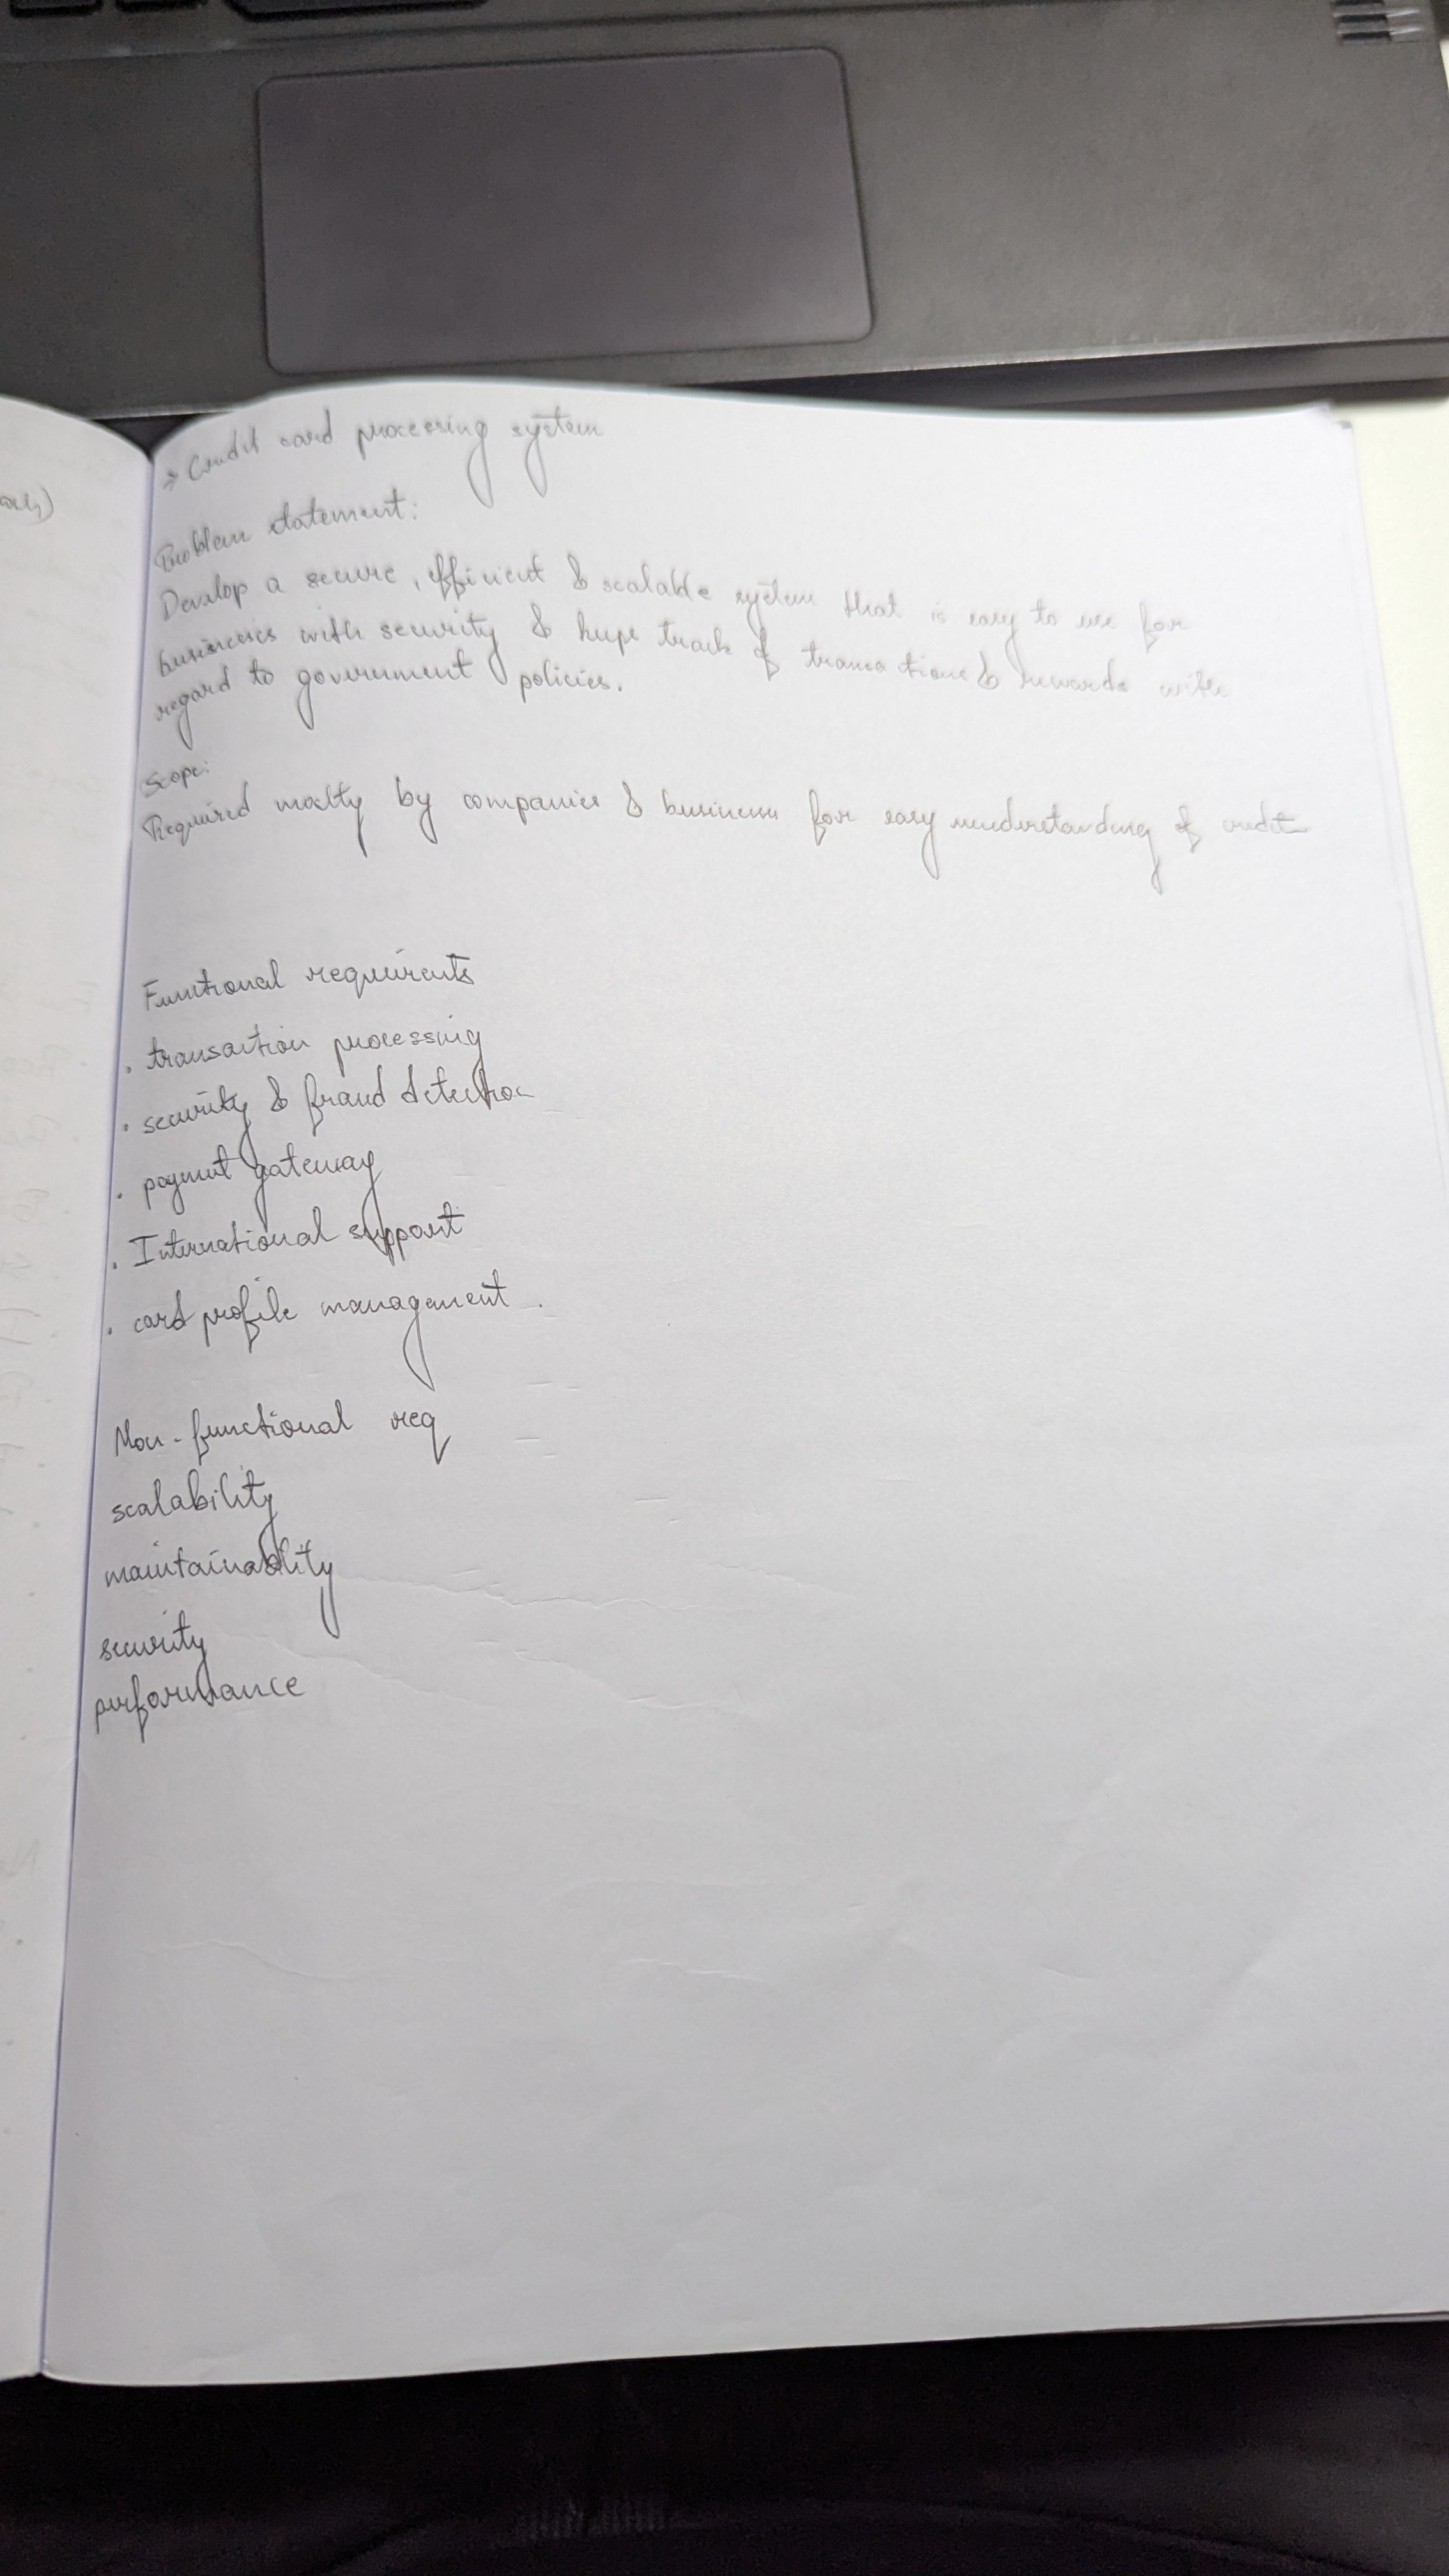 → Credit card processing system
Problem statement:
Develop a secure, efficient & scalable system that is easy to use for
businesses with security & keeps track of transactions & rewards with
regard to government policies.
Scope:
Required mostly by companies & business for easy understanding of credit
Functional requirents
. transaction processing
. security & fraud detection
. payment gateway
. International support
. card profile management.
Non-functional req
scalability
maintainablity
security
performance